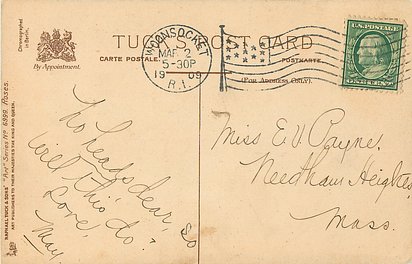 Chromographed
in Berlin.
By Appointment.
TUCK'S POST CARD
CARTE POSTALE
POSTKARTE
(FOR ADDRESS ONLY).
WOONSOCKET
MAR 2
5-30P
1909
R.I.
RAPHAEL TUCK & SONS' "Art" Series No 6989. Roses.
ART PUBLISHERS TO THEIR MAJESTIES THE KING AND QUEEN.
No heads dear, so
will this do?
Love,
May
Miss E V Payne,
Needham Heights,
Mass.